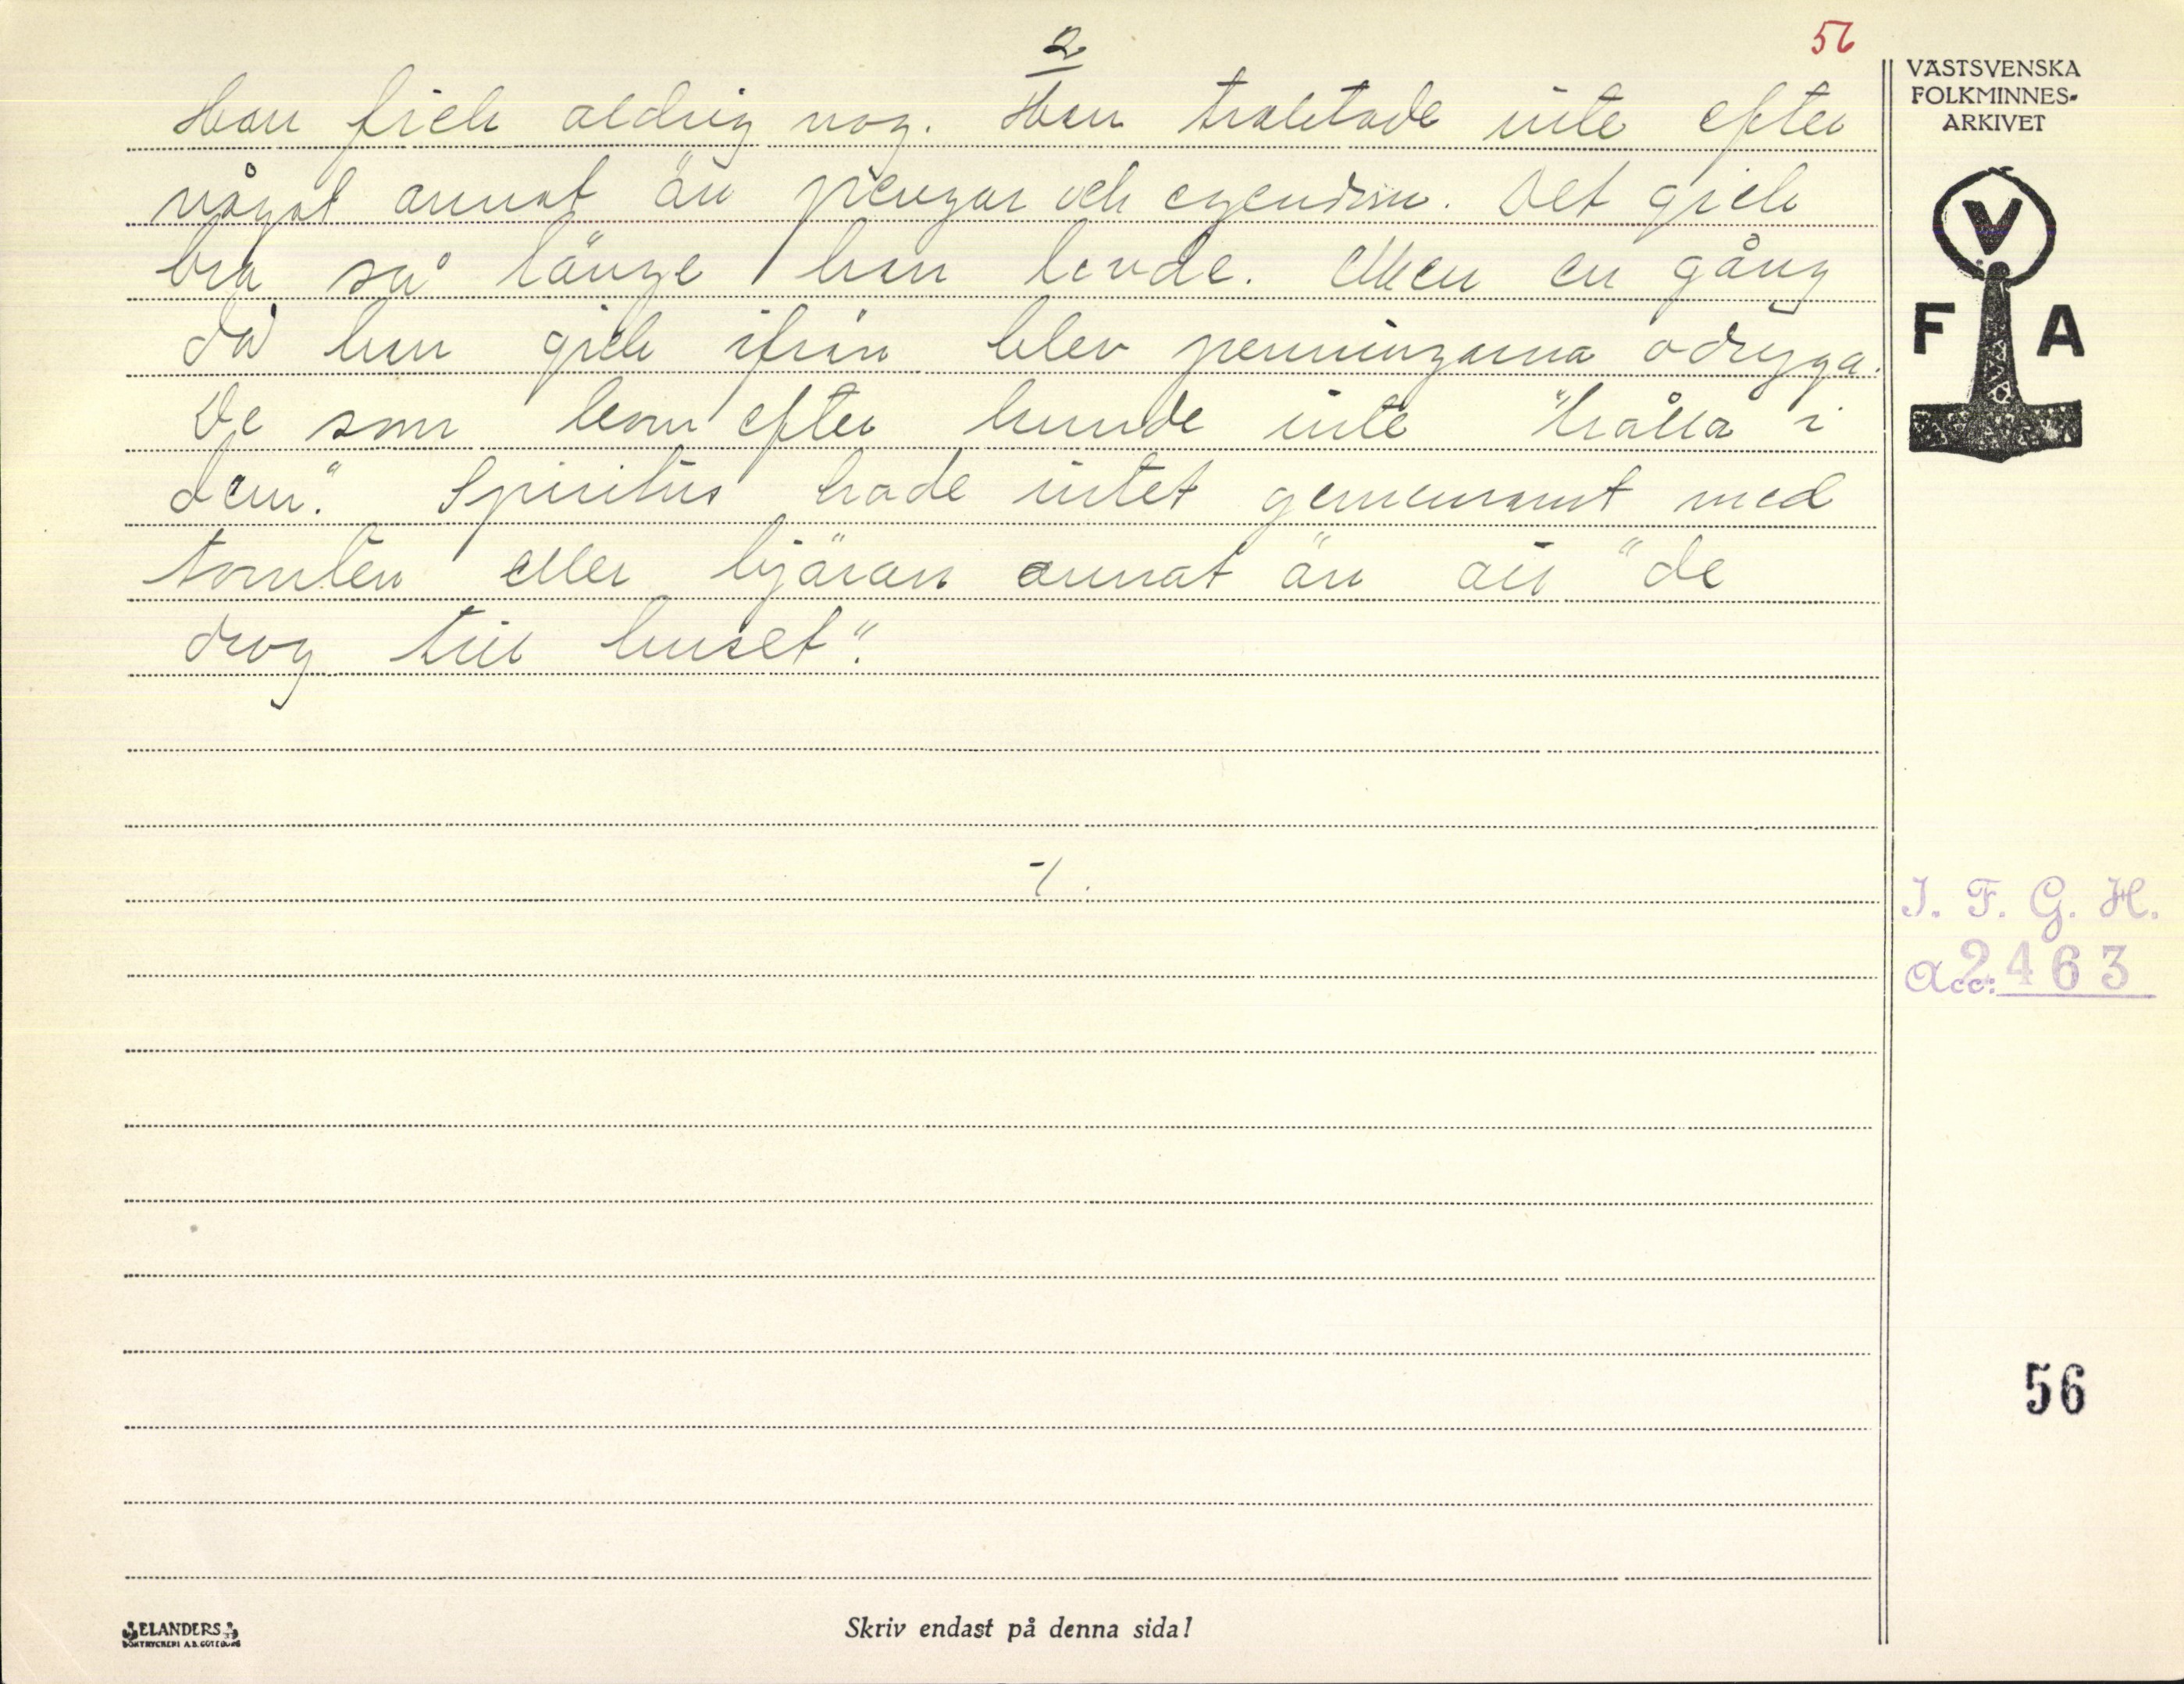 2
56
Han fick aldrig nog. Han traktade inte efter
något annat än pengar och egendom. Det gick
bra så länge han levde. Men en gång
då han gick ifrån blev penningarna odryga.
De som kom efter kunde inte "hålla i
dem." Spiritus hade intet gemensamt med
tomten eller bjäran annat än att "de
drog till huset".
-/.
VÄSTSVENSKA
FOLKMINNES-
ARKIVET
V
F A
I. F. G. H.
Acc: 2463
56
ELANDERS
BOKTRYCKERI A.B. GÖTEBORG
Skriv endast på denna sida!